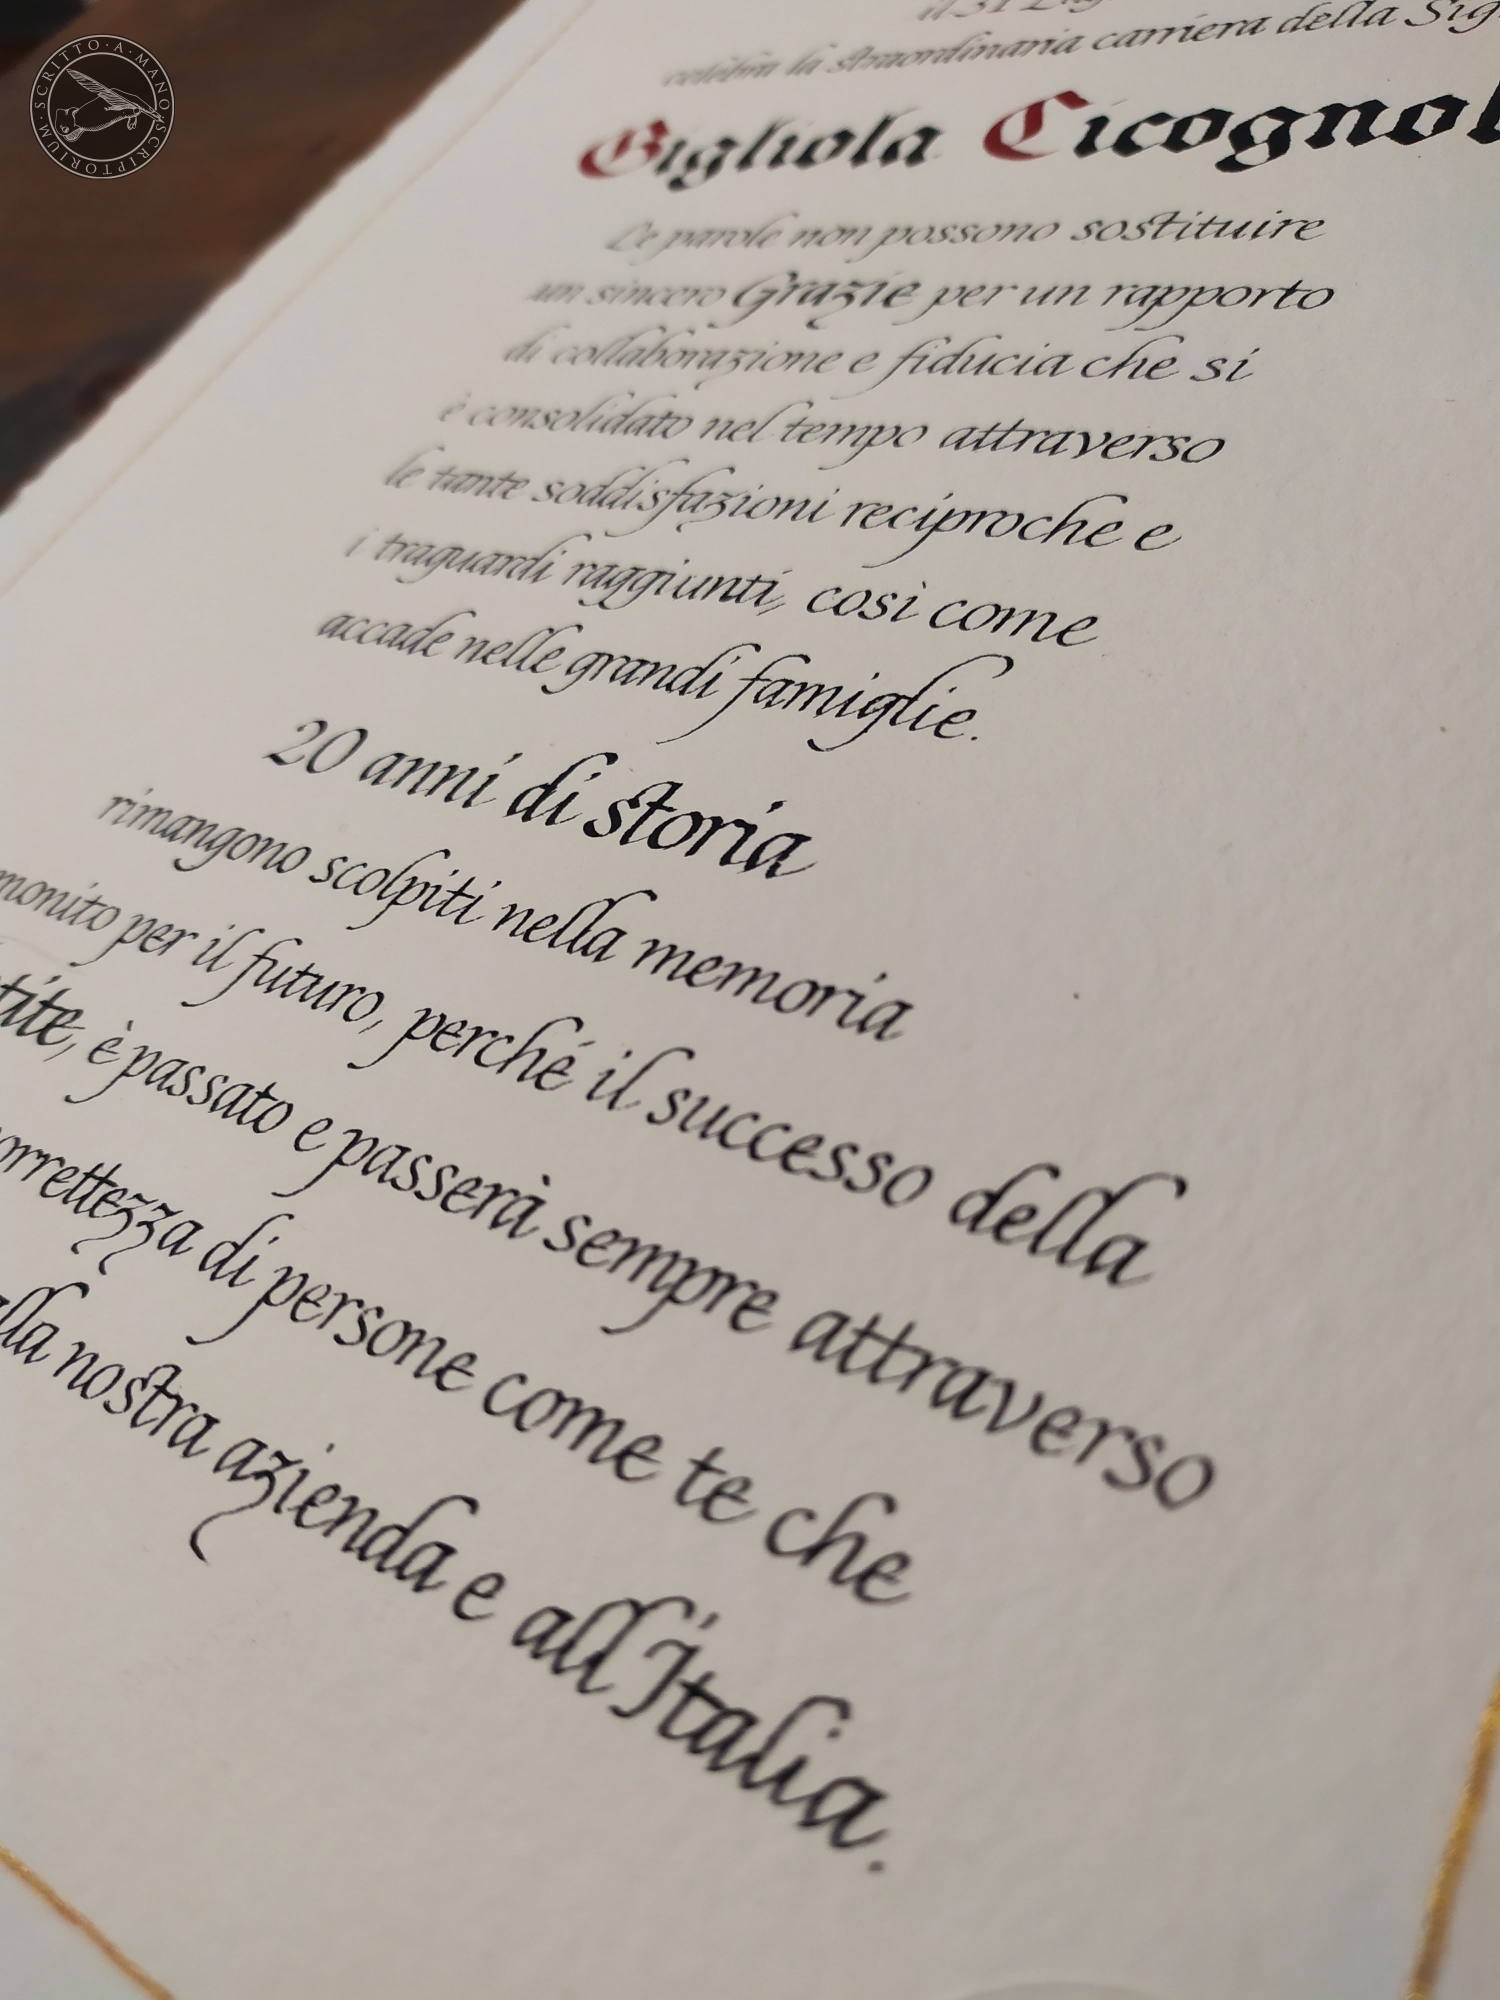 SCRITTO · A · MANO · SCRIPTORIUM ·
il 31
celebra la straordinaria carriera della
Gigliola
Le parole non possono sostituire
un sincero Grazie per un rapporto
di collaborazione e fiducia che si
è consolidato nel tempo attraverso
le tante soddisfazioni reciproche e
i traguardi raggiunti, così come
accade nelle grandi famiglie.
20 anni di storia
rimangono scolpiti nella memoria
monito per il futuro, perché il successo della
è passato e passerà sempre attraverso
correttezza di persone come te che
nostra azienda e all'Italia.